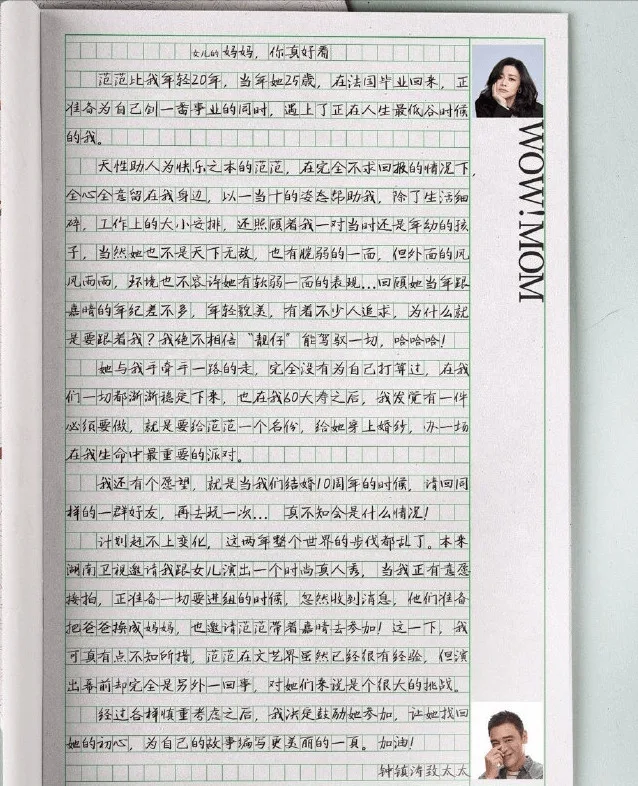 女儿的妈妈，你真好看
范范比我年轻20年，当年她25歳，在法国毕业回来，正
准备为自己创一番事业的同时，遇上了正在人生最低谷时候
的我。
天性助人为快乐之本的范范，在完全不求回报的情况下，
全心全意留在我身边，以一当十的姿态帮助我，除了生活细
碎，工作上的大小安排，还照顾着我一对当时还是年幼的孩
子，当然她也不是天下无敌，也有脆弱的一面，但外面的风
风雨雨，环境也不容许她有软弱一面的表现...回顾她当年跟
嘉晴的年纪差不多，年轻貌美，有着不少人追求，为什么就
是要跟着我？我绝不相信“靓仔”能驾驭一切，哈哈哈！
她与我手牵手一路的走，完全没有为自己打算过，在我
们一切都渐渐稳定下来，也在我60大寿之后，我发觉有一件
必须要做，就是要给范范一个名份，给她穿上婚纱，办一场
在我生命中最重要的派对。
我还有个愿望，就是当我们结婚10周年的时候，请回同
样的一群好友，再去玩一次... 真不知会是什么情况！
计划赶不上变化，这两年整个世界的步伐都乱了。本来
湖南卫视邀请我跟女儿演出一个时尚真人秀，当我正有意愿
接拍，正准备一切要进组的时候，忽然收到消息，他们准备
把爸爸换成妈妈，也邀请范范带着嘉晴去参加！这一下，我
可真有点不知所措，范范在文艺界虽然已经很有经验，但演
出幕前却完全是另外一回事，对她们来说是个很大的挑战。
经过各样慎重考虑之后，我决定鼓励她参加，让她找回
她的初心，为自己的故事编写更美丽的一頁。加油！
钟镇涛致太太
WOW!MOM